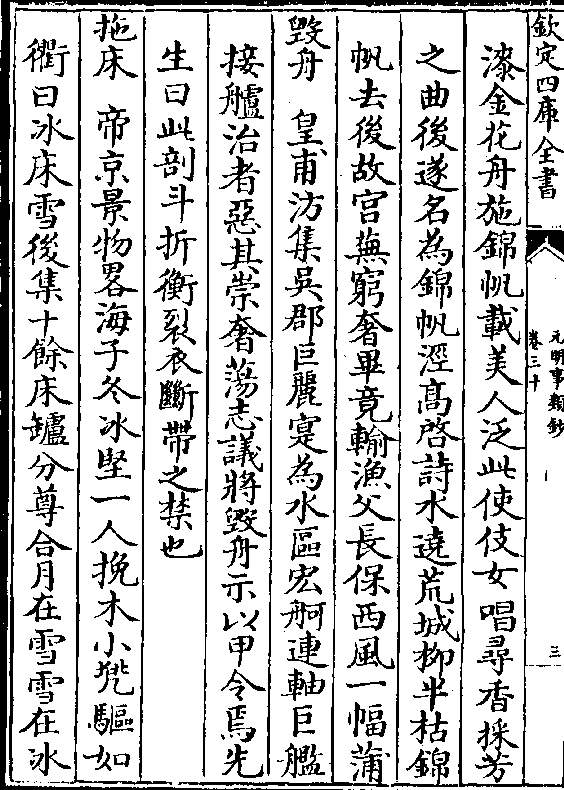 欽定四庫全書
元明事類鈔
卷三十
三
漆金花舟施錦帆載美人泛此使伎女唱尋香採芳
之曲後遂名為錦帆涇高啓詩水遶荒城栁半枯錦
帆去後故宫蕪窮奢畢竟輸漁父長保西風一幅蒲
毀舟 皇甫汸集吳郡巨麗寔為水區宏舸連軸巨艦
接艫治者惡其崇奢蕩志議將毀舟示以甲令焉先
生曰此剖斗折衡裂衣斷帶之禁也
拖床 帝京景物畧海子冬冰堅一人挽木小凳驅如
衢曰冰床雪後集十餘床鑪分尊合月在雪雪在冰